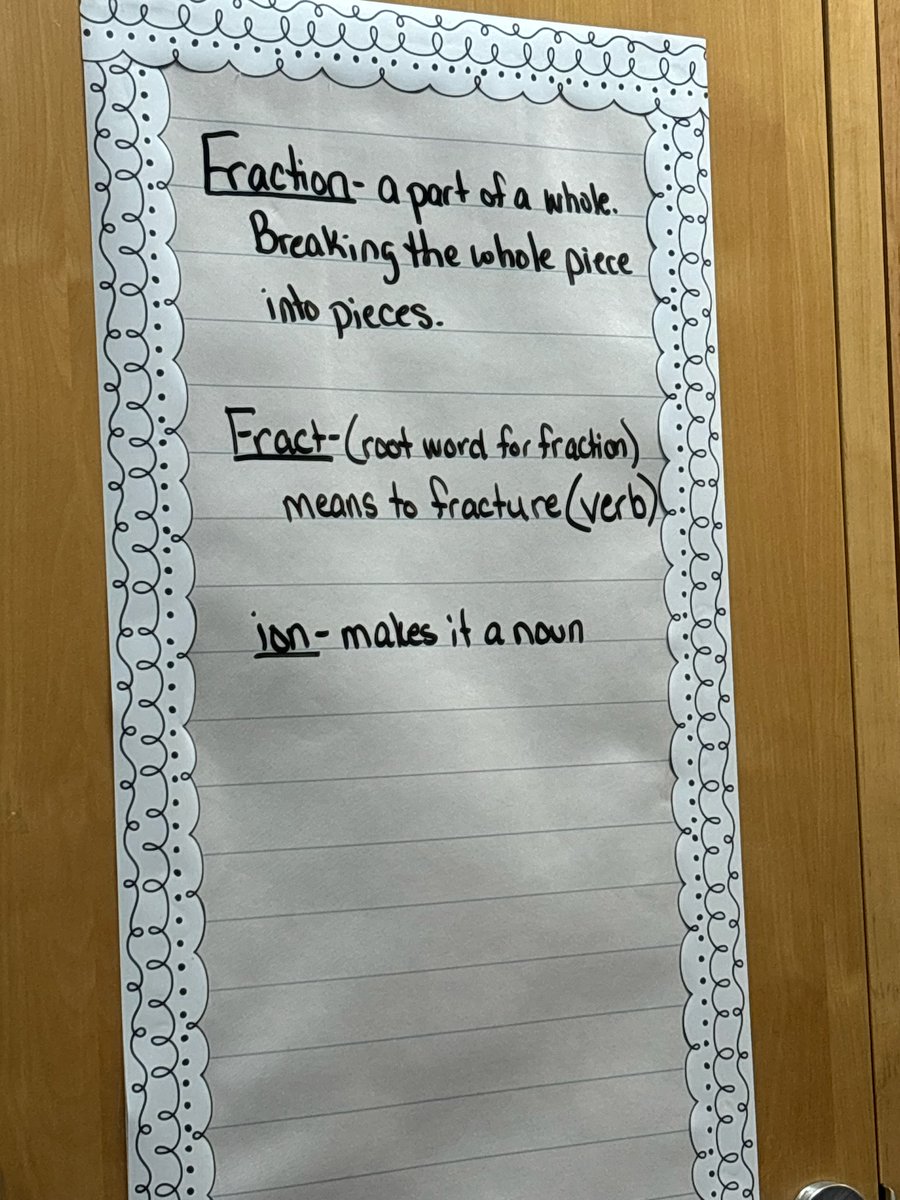 Fraction- a part of a whole.
Breaking the whole piece
into pieces.
Fract-(root word for fraction)
means to fracture (verb)
ion- makes it a noun